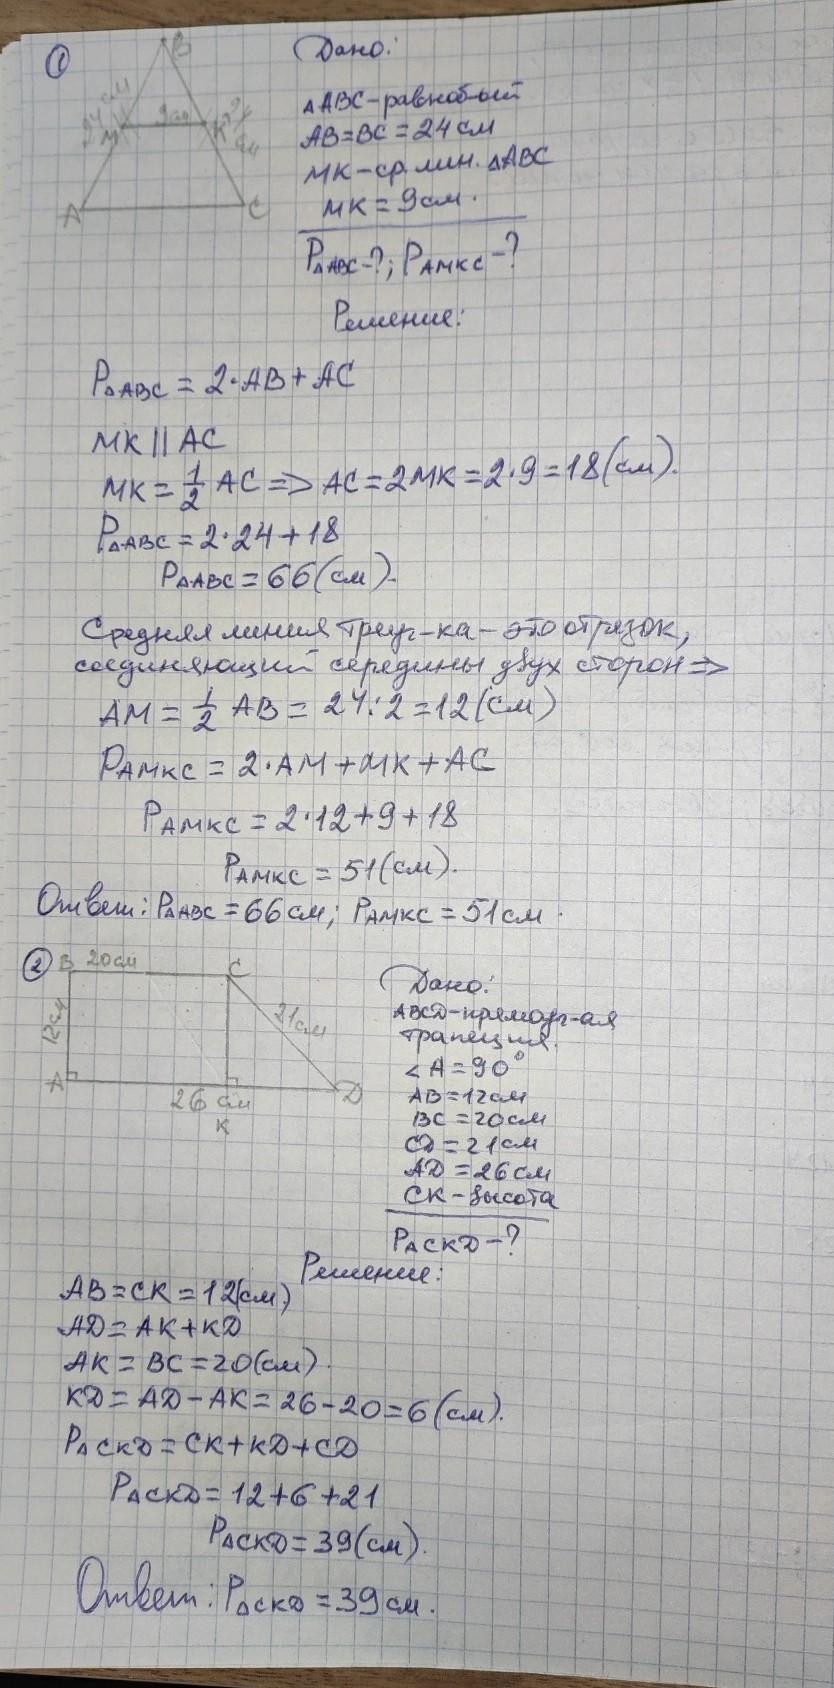 1
B
24 см
9см
24 см
M
K
A
C
Дано:
△ABC-равнобthe
AB=BC=24см
MK-ср.лин. △ABC
MK=9см.
P△ABC-?; PAMKC-?
Решение:
P△ABC = 2·AB+AC
MK || AC
MK = 1/2 AC => AC = 2MK = 2·9 = 18(см).
P△ABC = 2·24+18
P△ABC = 66(см).
Средняя линия треуг-ка - это отрезок,
соединяющий середины двух сторон =>
AM = 1/2 AB = 24:2 = 12(см)
PAMKC = 2·AM+MK+AC
PAMKC = 2·12+9+18
PAMKC = 51(см).
Ответ: P△ABC = 66см; PAMKC = 51см.
2
B 20см C
12см
21см
A
26 см
D
K
Дано:
ABCD-прямоуг-ая
трапеция.
∠A=90°
AB=12см
BC=20см
CD=21см
AD=26см
CK-высота
P△CKD-?
Решение:
AB=CK=12(см)
AD=AK+KD
AK=BC=20(см).
KD=AD-AK=26-20=6(см).
P△CKD=CK+KD+CD
P△CKD=12+6+21
P△CKD=39(см).
Ответ: P△CKD=39см.